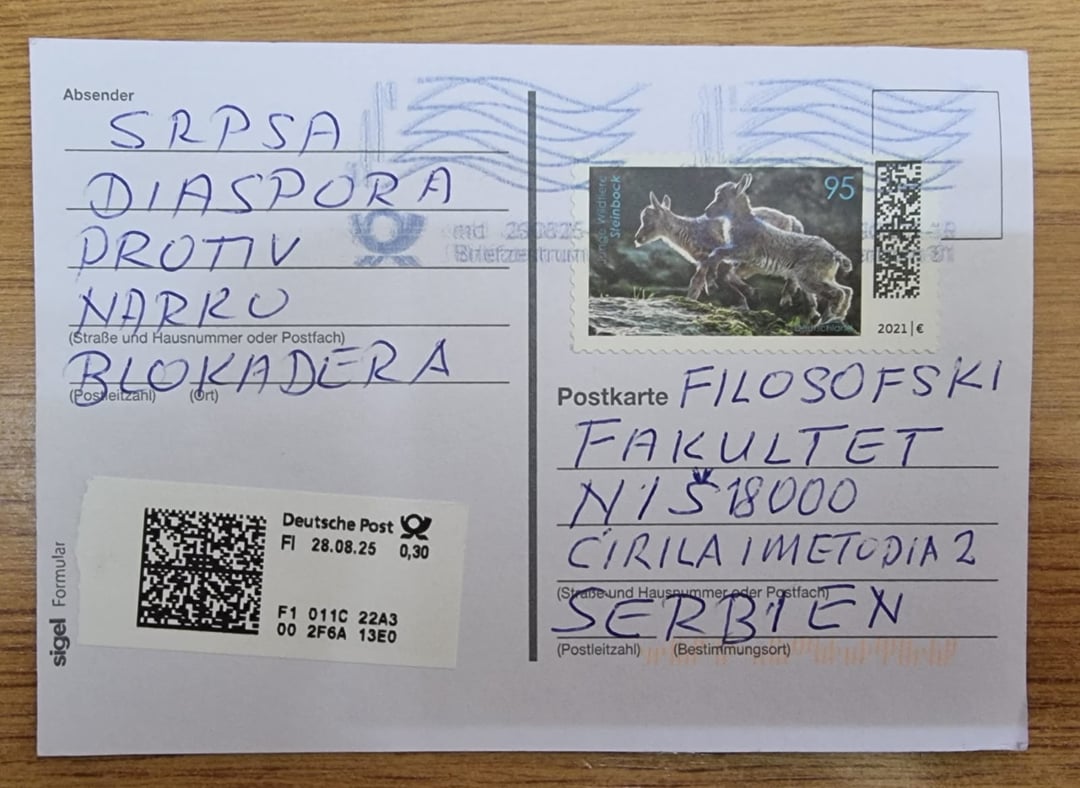 Absender
SRPSA
DIASPORA
PROTIV
NARKO
(Straße und Hausnummer oder Postfach)
BLOKADERA
(Postleitzahl) (Ort)
Deutsche Post
FI 28.08.25 0,30
F1 011C 22A3
00 2F6A 13E0
sigel Formular
Briefzentrum
Junge Wildtiere
Steinbock
95
Deutschland
2021 | €
Postkarte FILOSOFSKI
FAKULTET
NIŠ 18000
ĆIRILA I METODIA 2
(Straße und Hausnummer oder Postfach)
SERBIEN
(Postleitzahl) (Bestimmungsort)